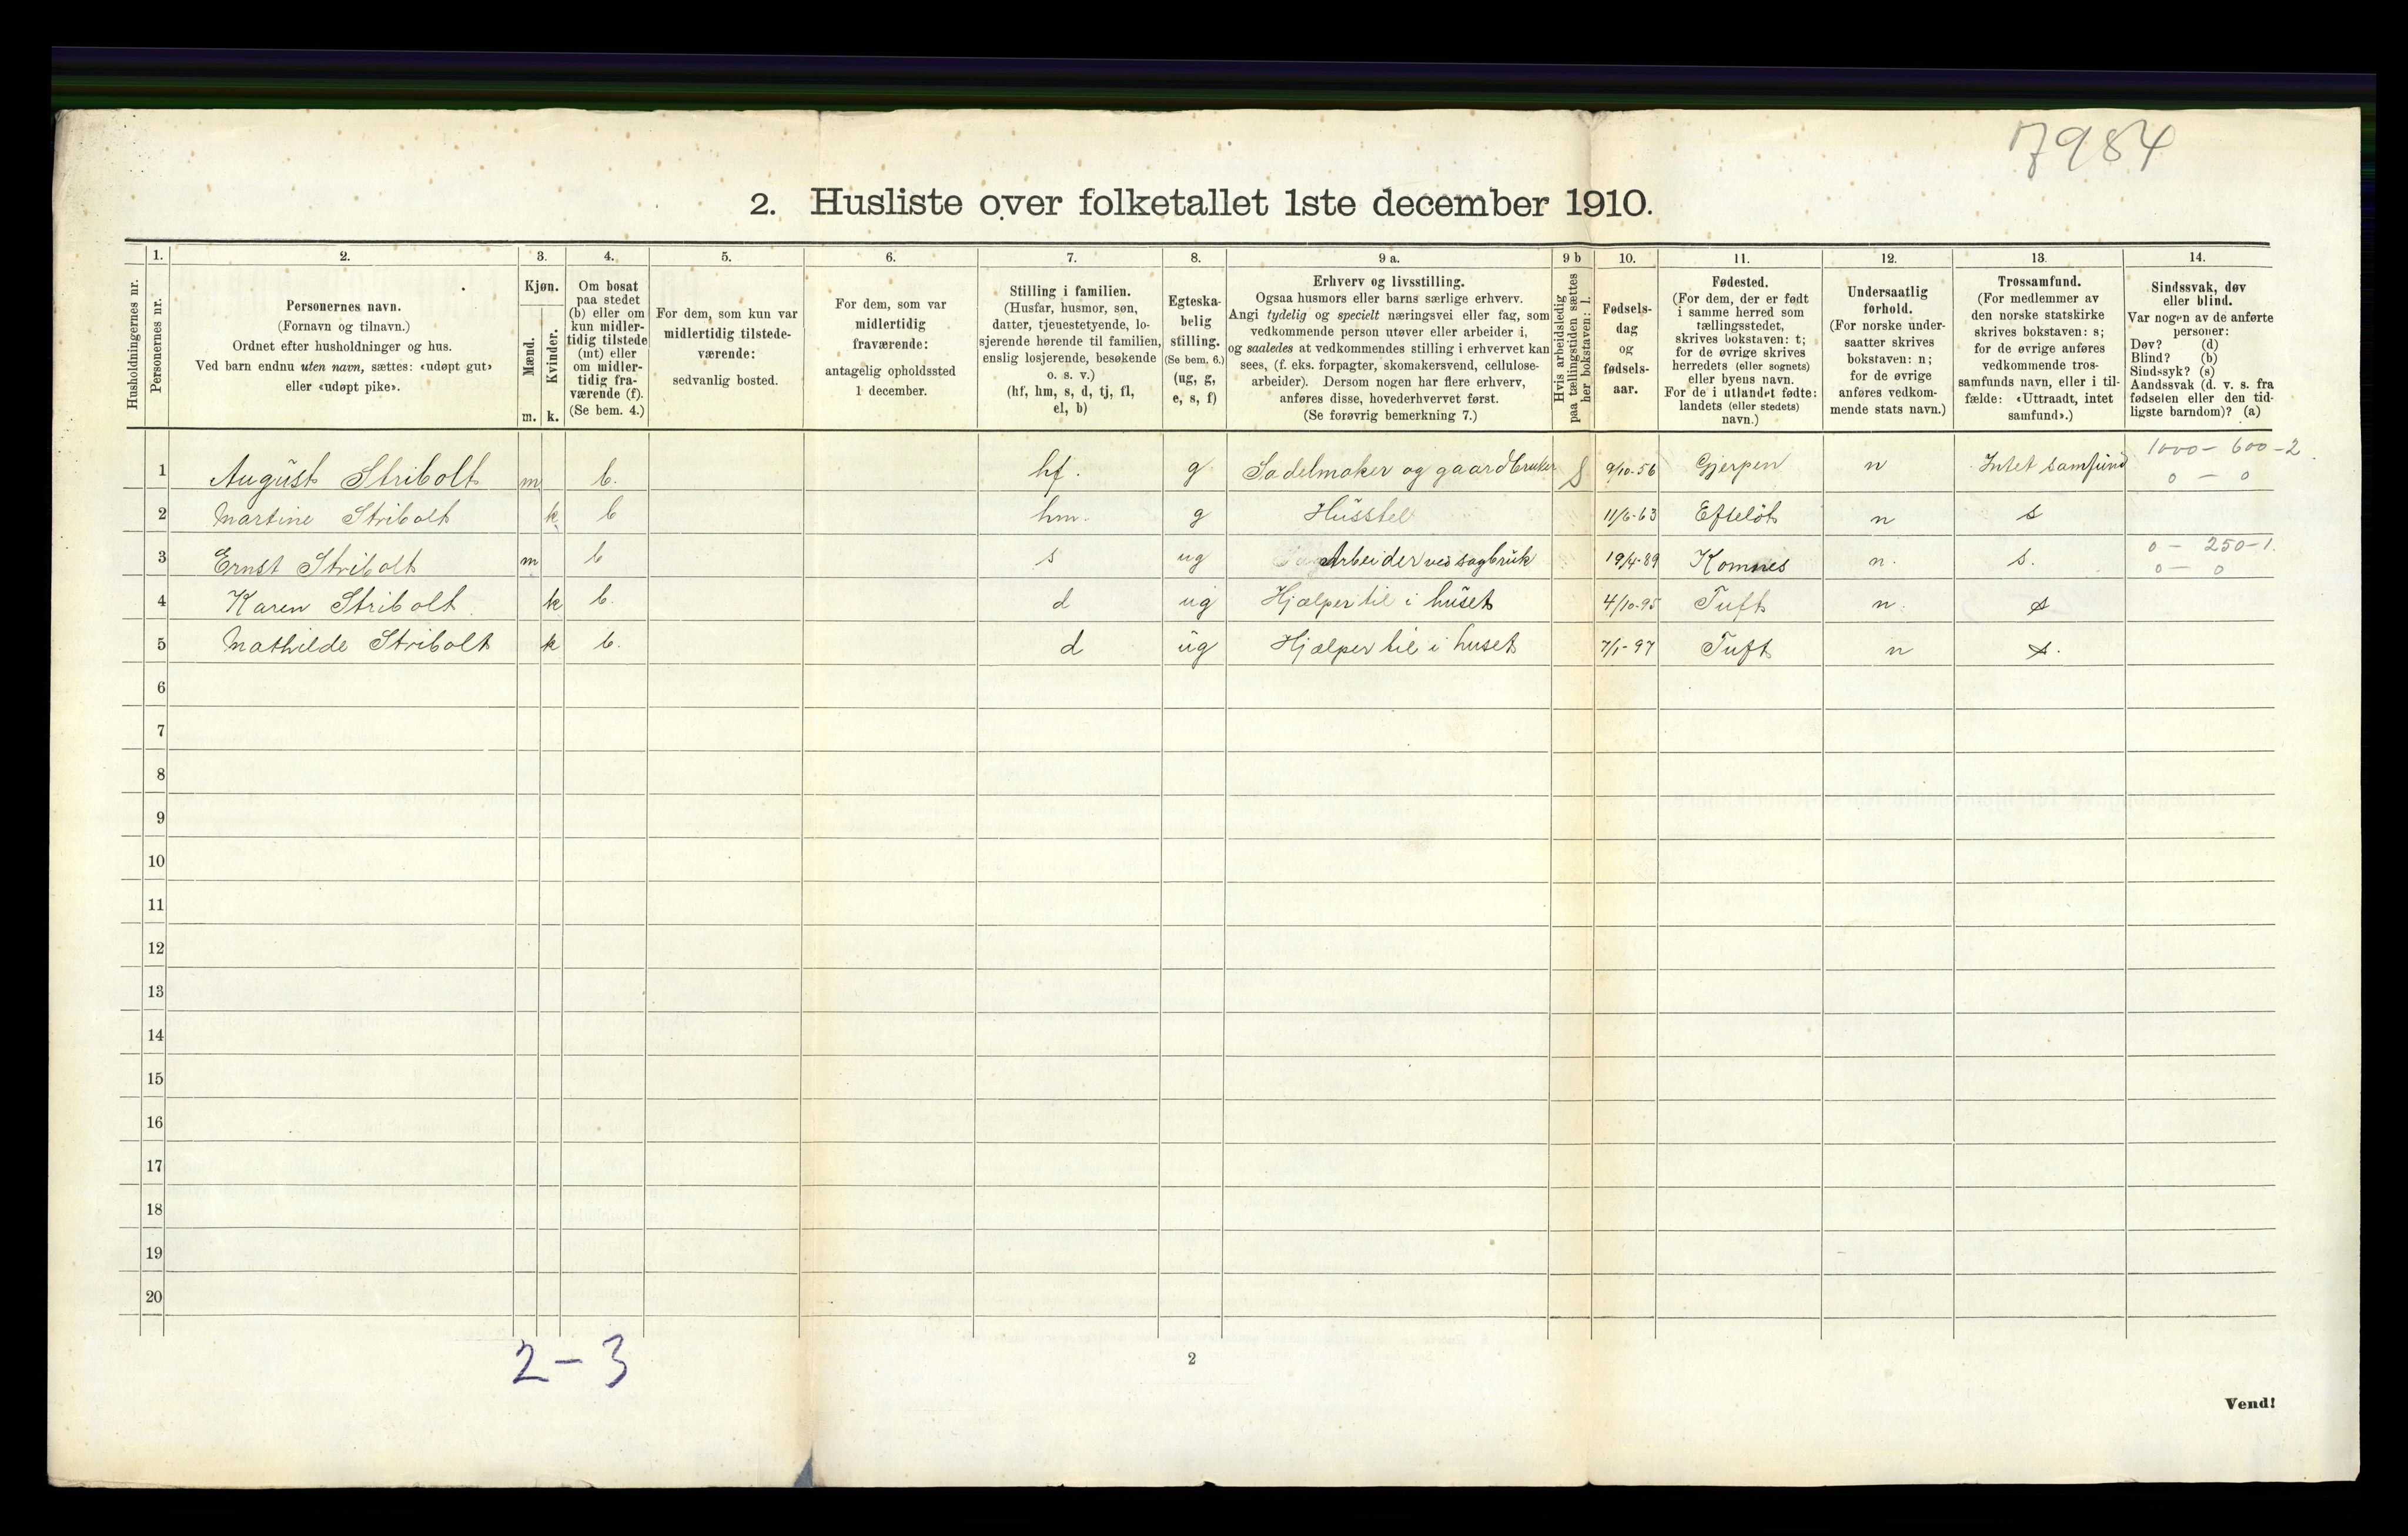 7984
2. Husliste over folketallet 1ste december 1910.
Husholdningernes nr.
1.
Personernes nr.
2.
Personernes navn.
(Fornavn og tilnavn.)
Ordnet efter husholdninger og hus.
Ved barn endnu uten navn, sættes: «udøpt gut»
eller «udøpt pike».
3.
Kjøn.
Mænd.
Kvinder.
m. k.
4.
Om bosat
paa stedet
(b) eller om
kun midler-
tidig tilstede
(mt) eller
om midler-
tidig fra-
værende (f).
(Se bem. 4.)
5.
For dem, som kun var
midlertidig tilstede-
værende:
sedvanlig bosted.
6.
For dem, som var
midlertidig
fraværende:
antagelig opholdssted
1 december.
7.
Stilling i familien.
(Husfar, husmor, søn,
datter, tjenestetyende, lo-
sjerende hørende til familien,
enslig losjerende, besøkende
o. s. v.)
(hf, hm, s, d, tj, fl,
el, b)
8.
Egteska-
belig
stilling.
(Se bem. 6.)
(ug, g,
e, s, f)
9 a.
Erhverv og livsstilling.
Ogsaa husmors eller barns særlige erhverv.
Angi tydelig og specielt næringsvei eller fag, som
vedkommende person utøver eller arbeider i,
og saaledes at vedkommendes stilling i erhvervet kan
sees, (f. eks. forpagter, skomakersvend, cellulose-
arbeider). Dersom nogen har flere erhverv,
anføres disse, hovederhvervet først.
(Se forøvrig bemerkning 7.)
9 b
Hvis arbeidsledig
paa tællingstiden sættes
her bokstaven: l.
10.
Fødsels-
dag
og
fødsels-
aar.
11.
Fødested.
(For dem, der er født
i samme herred som
tællingsstedet,
skrives bokstaven: t;
for de øvrige skrives
herredets (eller sognets)
eller byens navn.
For de i utlandet fødte:
landets (eller stedets)
navn.)
12.
Undersaatlig
forhold.
(For norske under-
saatter skrives
bokstaven: n;
for de øvrige
anføres vedkom-
mende stats navn.)
13.
Trossamfund.
(For medlemmer av
den norske statskirke
skrives bokstaven: s;
for de øvrige anføres
vedkommende tros-
samfunds navn, eller i til-
fælde: «Uttraadt, intet
samfund».)
14.
Sindssvak, døv
eller blind.
Var nogen av de anførte
personer:
Døv? (d)
Blind? (b)
Sindssyk? (s)
Aandssvak (d. v. s. fra
fødselen eller den tid-
ligste barndom)? (a)
1 August Stribolt m b. hf. g Sadelmaker og gaardbruker S 9/10-56 Gjerpen n Intet samfund 1000 - 600 - 2.
0 - 0
2 Martine Stribolt k b hm. g Husstel 11/6-63 Efteløt n s
3 Ernst Stribolt m b s ug Arbeider ved sagbruk 19/4-89 Komnes n. s. 0 - 250-1.
0 - 0
4 Karen Stribolt k b. d ug Hjælper til i huset 4/10-95 Tuft n. s
5 Mathilde Stribolt k b. d ug Hjælper til i huset 7/1-97 Tuft n s.
6
7
8
9
10
11
12
13
14
15
16
17
18
19
20
2 - 3
2
Vend!